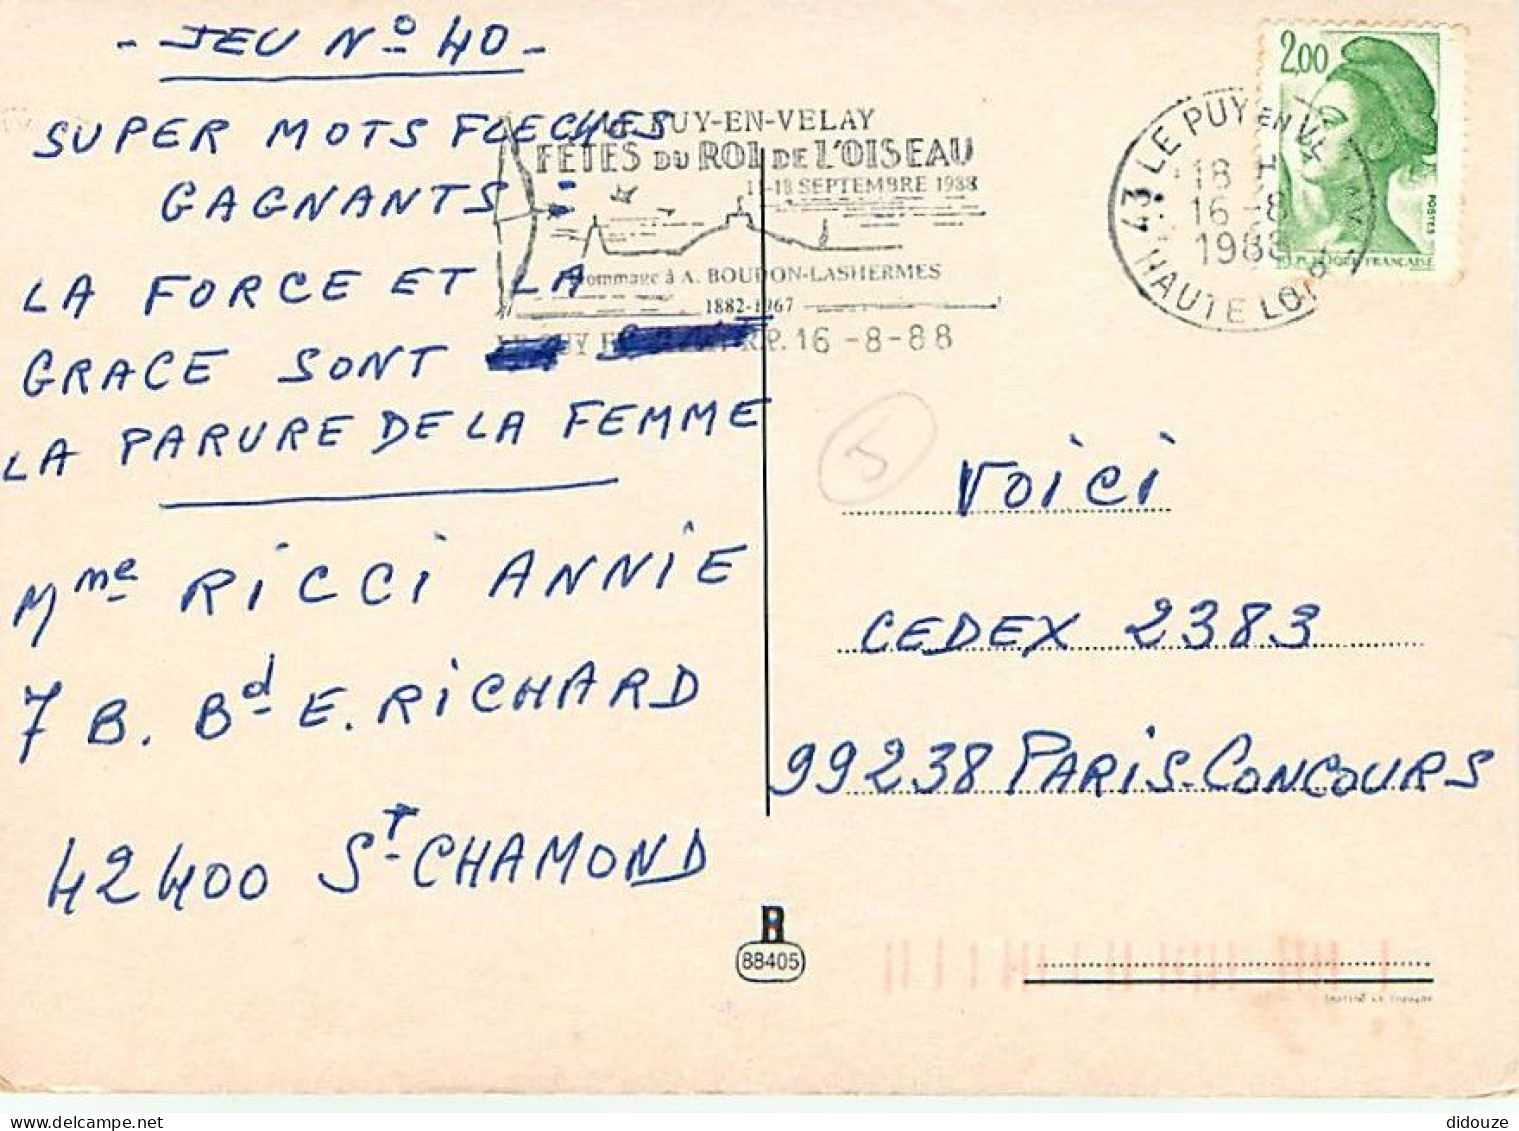 - JEU N° 40 -
SUPER MOTS FLECHES
GAGNANTS :
LA FORCE ET LA
GRACE SONT
LA PARURE DE LA FEMME
Mme RICCI ANNIE
7 B. Bd E. RICHARD
42400 ST-CHAMOND
LE PUY-EN-VELAY
FÊTES DU ROI DE L'OISEAU
SEPTEMBRE 1988
Hommage à A. BOUDON-LASHERMES
1882-1967
R.P. 16-8-88
43 LE PUY EN VELAY
18 H
16-8
1988
HAUTE LOIRE
2,00
POSTES
REPUBLIQUE FRANÇAISE
J
VOICI
CEDEX 2383
99238 PARIS-CONCOURS
R
88405
didouze